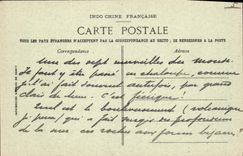 INDO CHINE FRANÇAISE
CARTE POSTALE
TOUS LES PAYS ÉTRANGERS N'ACCEPTENT PAS LA CORRESPONDANCE AU RECTO, SE RENSEIGNER A LA POSTE
Correspondance Adresse
Une des sept merveilles du monde.
Il faut y être passé en chaloupe, comme
je l'ai fait souvent autrefois, par grand
clair de lune. C'est féerique!
Quel est le bouleversement (volcanique
je pense) qui a fait surgir des profondeurs
de la mer ces roches aux formes bizarres?